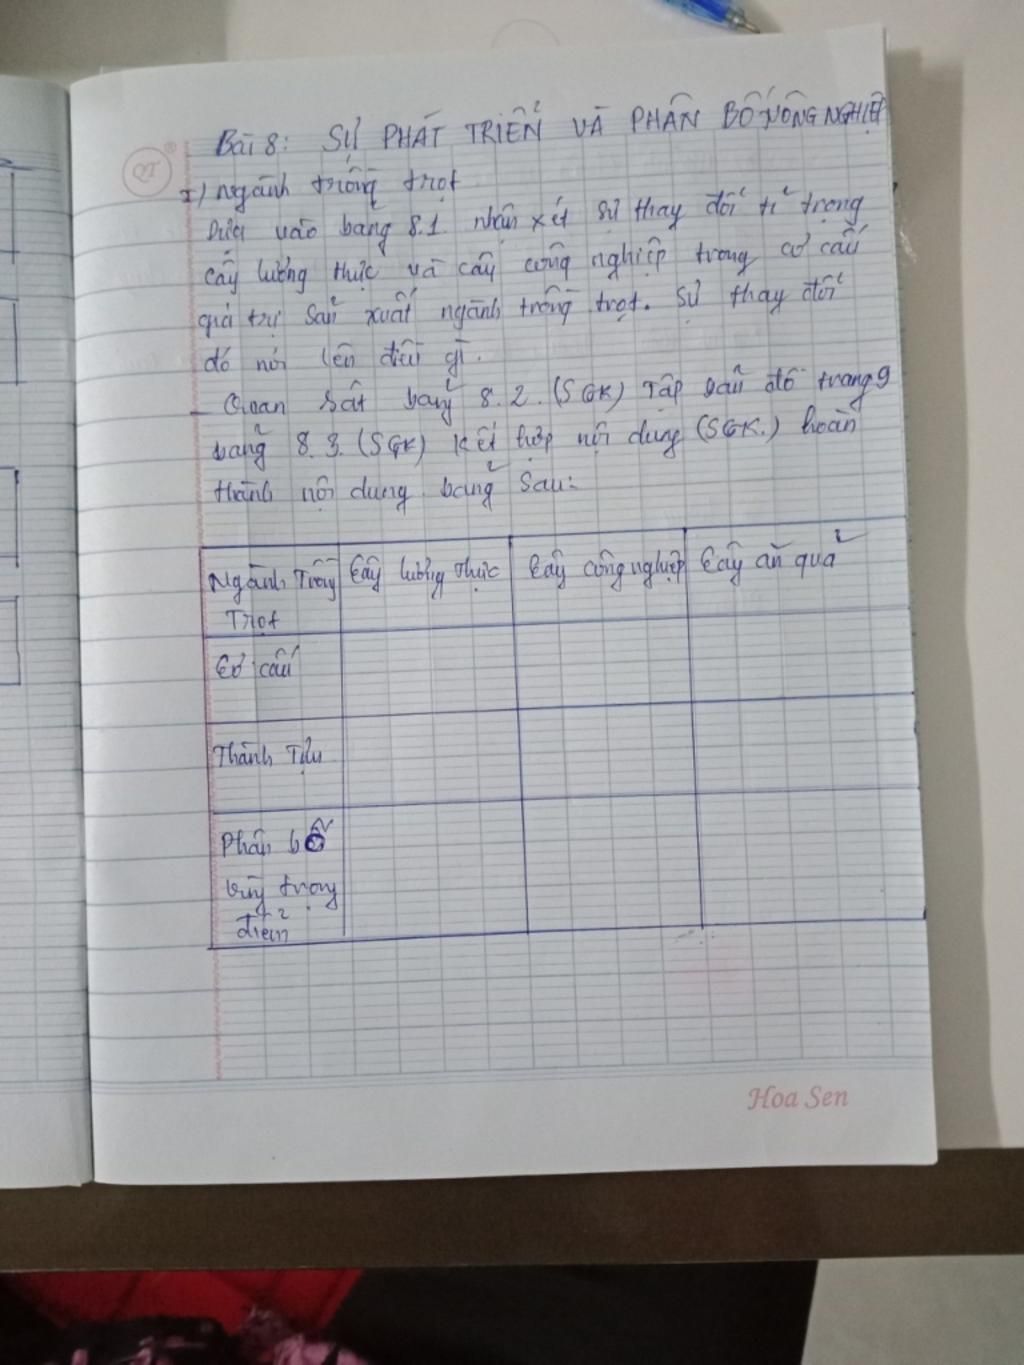 Bài 8: SỰ PHÁT TRIỂN VÀ PHÂN BỐ NÔNG NGHIỆP
QT
I) Ngành trồng trọt
Dựa vào bảng 8.1. nhận xét sự thay đổi tỉ trọng
cây lương thực và cây công nghiệp trong cơ cấu
giá trị sản xuất ngành trồng trọt. Sự thay đổi
đó nói lên điều gì.
- Quan sát bảng 8.2. (SGK) Tập bản đồ trang 9
bảng 8.3. (SGK) kết hợp nội dung (SGK.) hoàn
thành nội dung bảng sau:
Ngành Trồng Trọt Cây lương thực Cây công nghiệp Cây ăn quả
Cơ cấu
Thành Tựu
Phân bố
vùng trọng
điểm
Hoa Sen